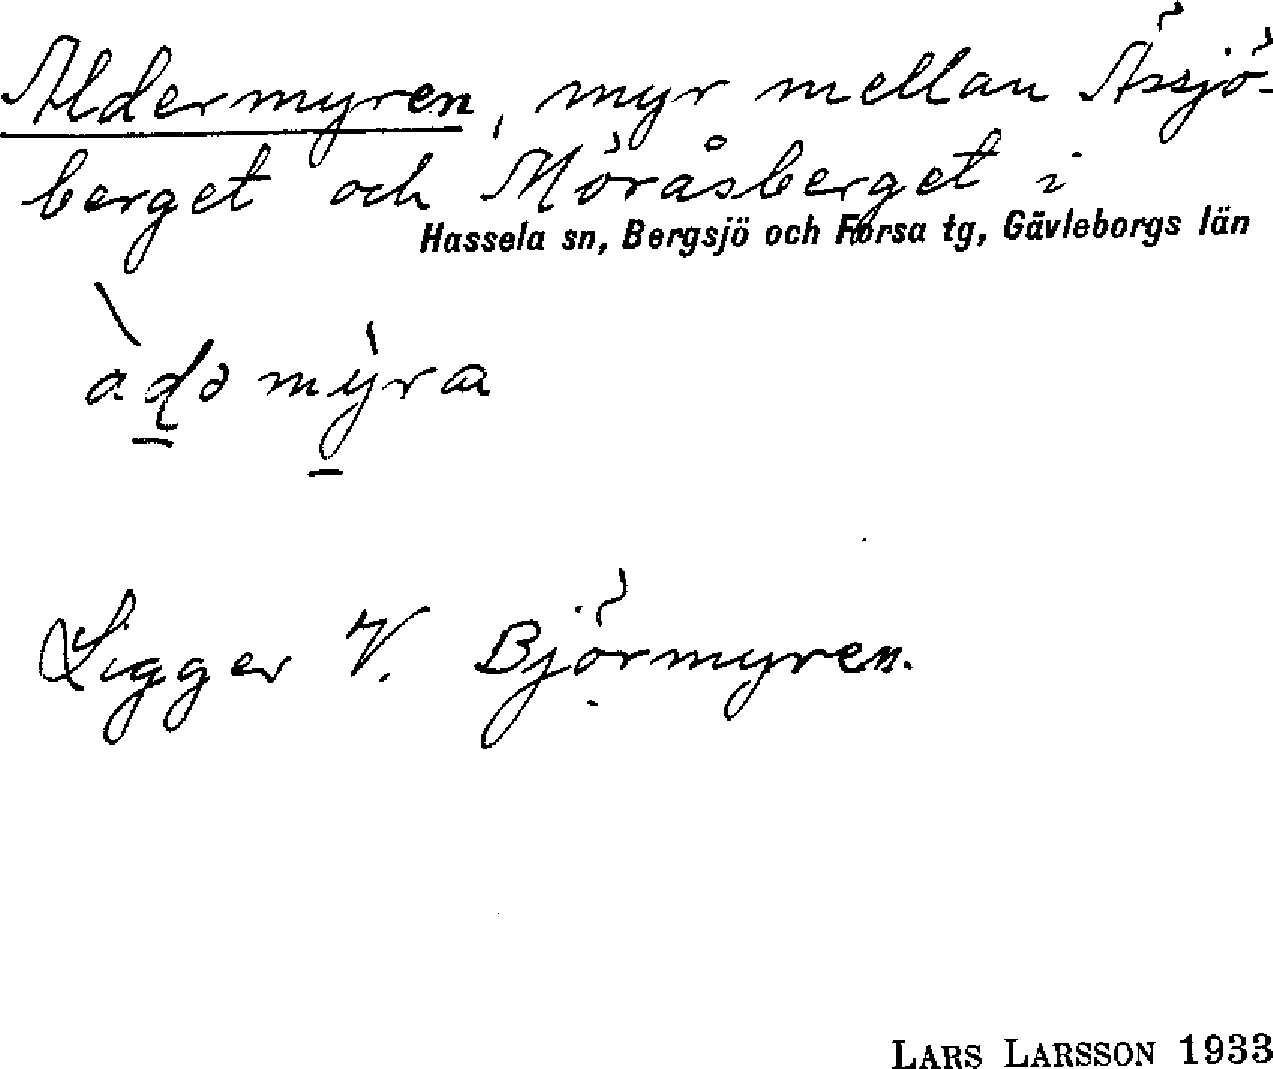 Aldermyren, myr mellan Ässjö-
berget och Möråsberget i
Hassela sn, Bergsjö och Forsa tg, Gävleborgs län
Ligger V. Björmyren.
LARS LARSSON 1933